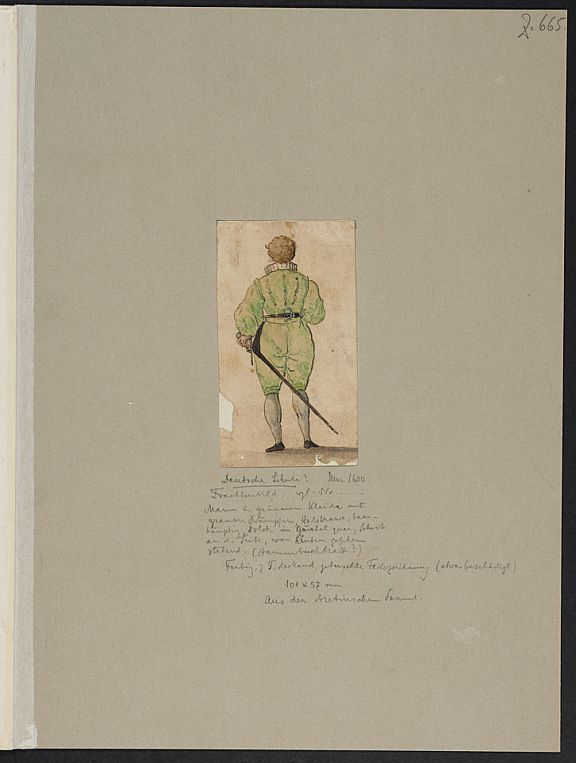 Z. 665.
Deutsche Schule? Um 1600.
Trachtenbild. vgl. No.
Mann in grünem Kleide mit
grauen Strümpfen, Halskrause, bar-
häuptig Dolch im Gürtel quer, Schwert
an d. Seite, von hinten gesehen
stehend. (Stammbuchblatt?)
Farbig, z. T. deckend getuschte Federzeichnung (etwas beschädigt)
101 x 57 mm
Aus der Aretinschen Samml.